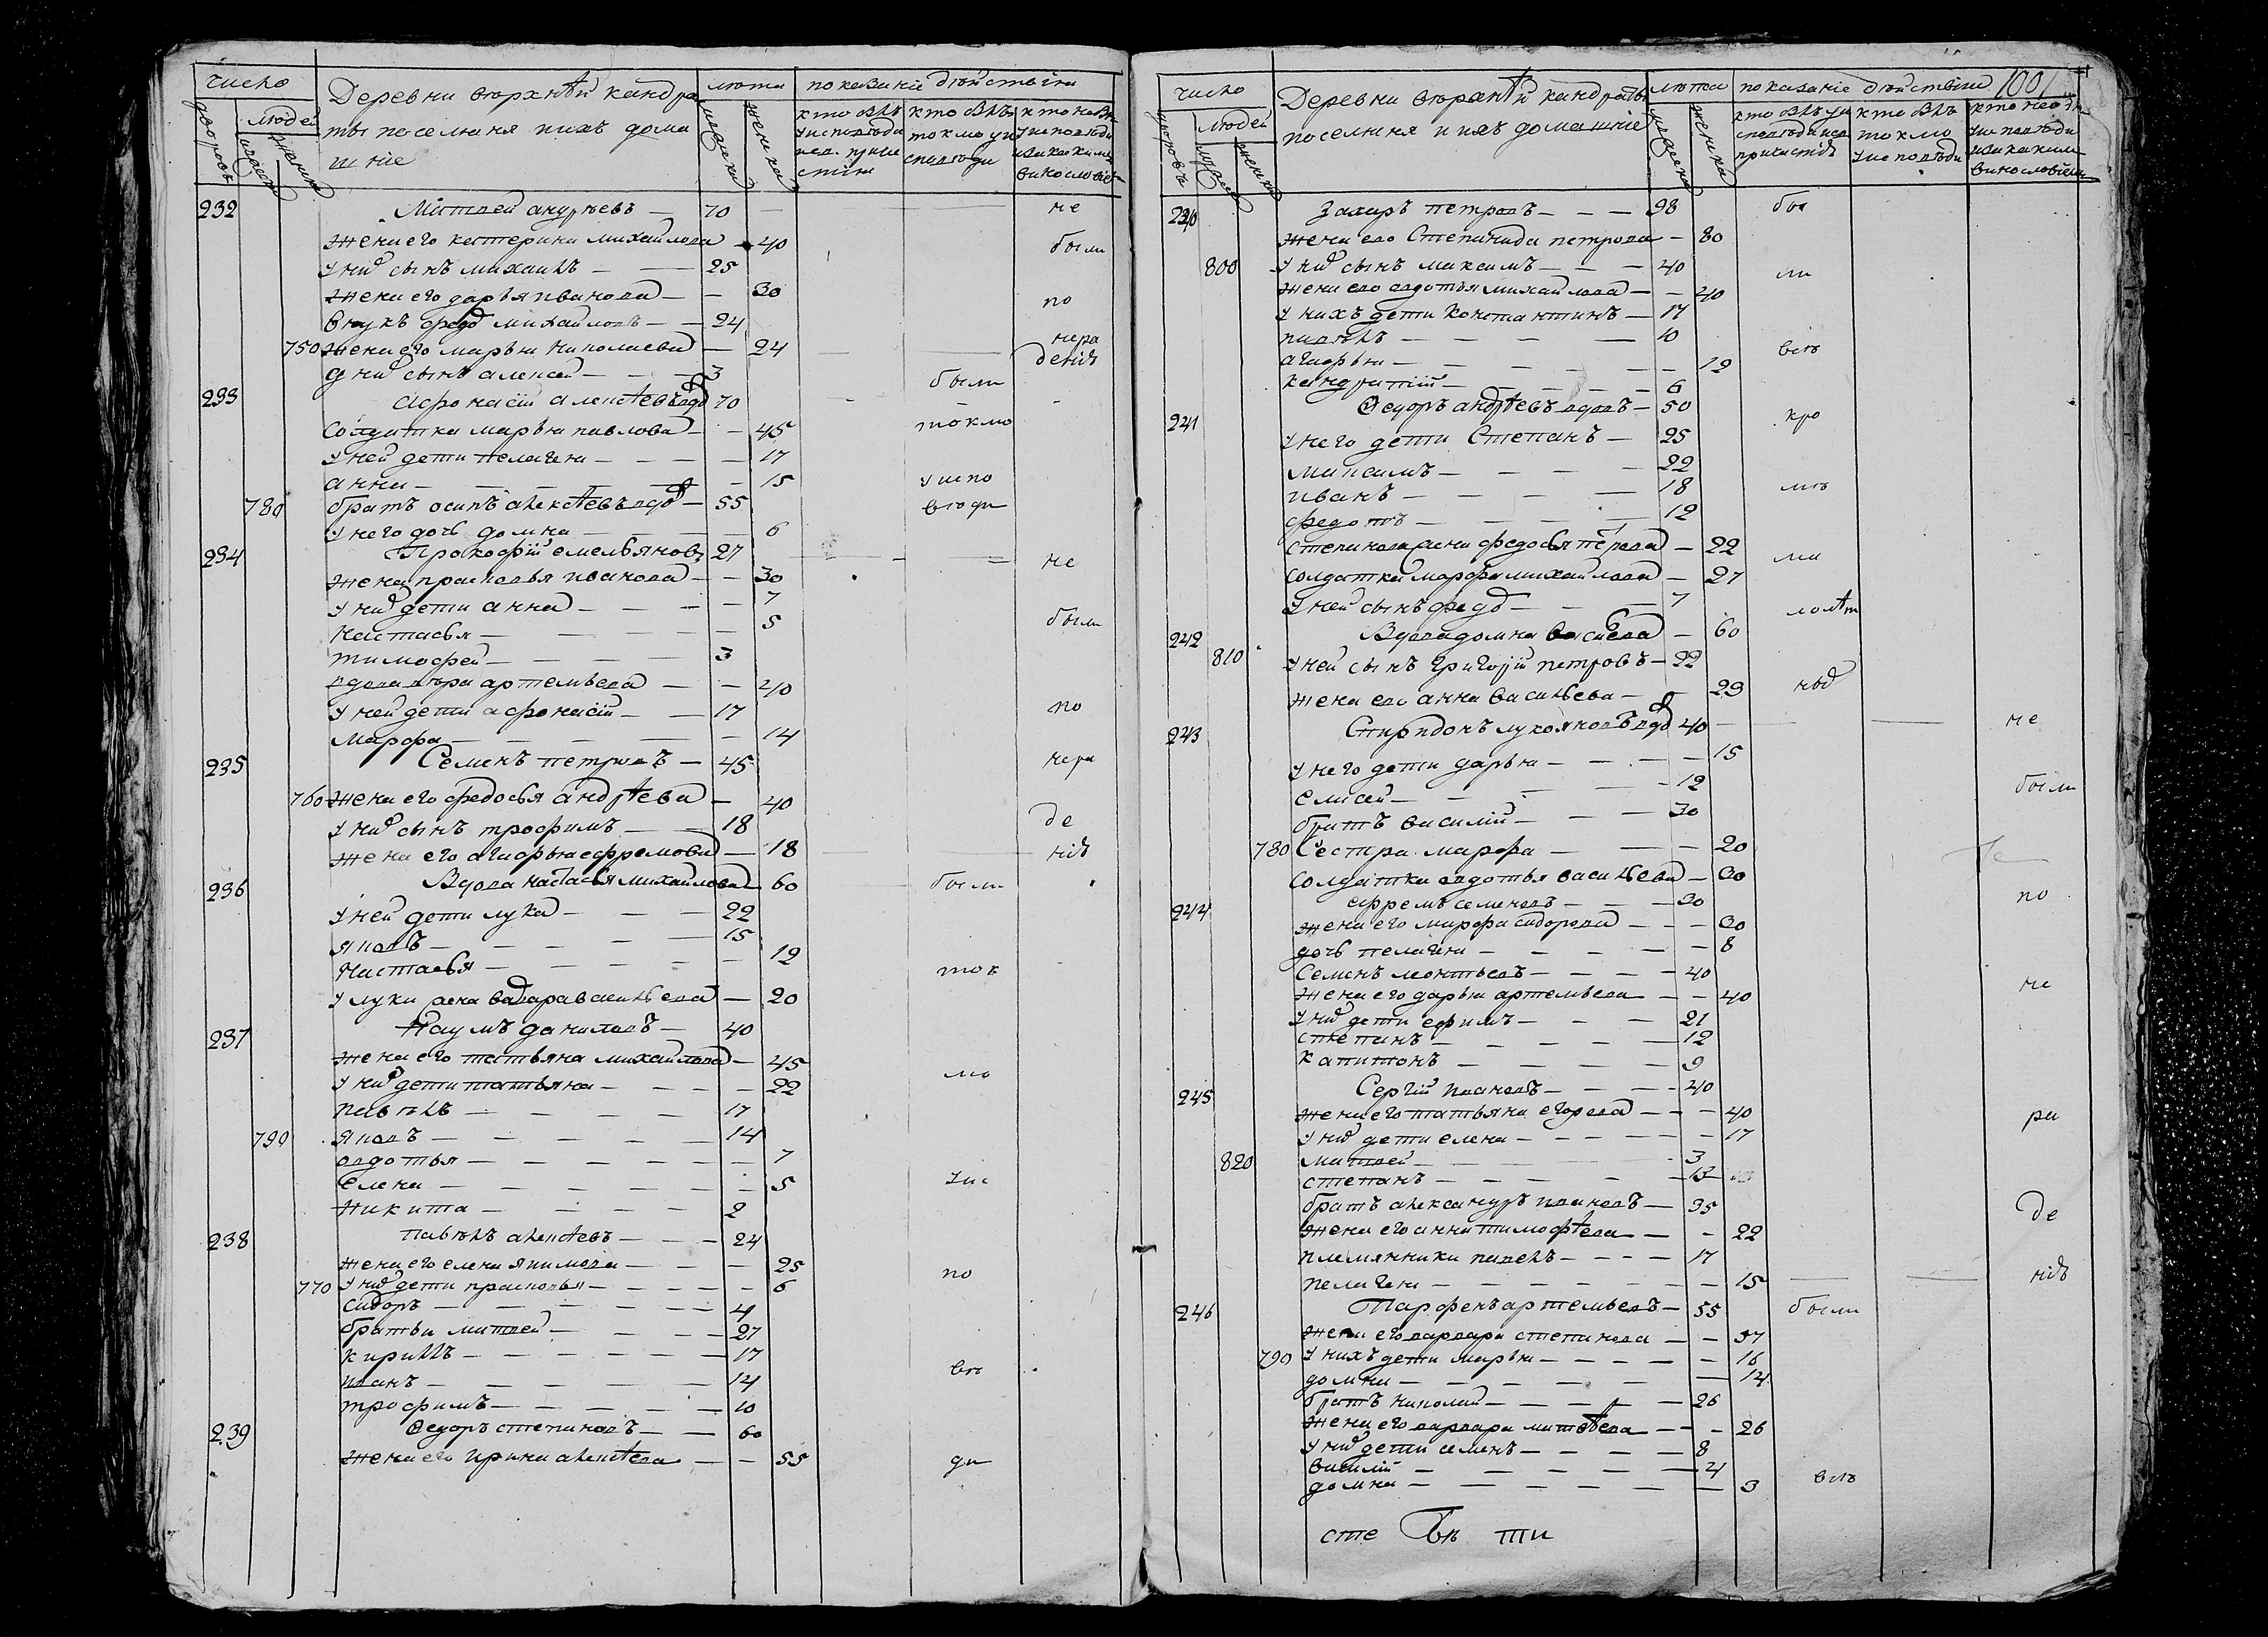 число
дворовъ
людей
мужеска
женска
Деревни верхнѣй кандра
ты поселяня ихъ дома
шніе
лѣта
мужеска
женска
показаніе дѣйствія
кто былъ
у исповѣди
и св. приче
стія
кто былъ
токмо у и
сповѣди
кто не бы
у исповѣди
232 Матвей андрѣевъ — 70 — не
жена его катерина михайлова — 40 были
у них сынъ михаилъ — 25
жена его дарья иванова — 30 по
внукъ федо михайловъ — 24 нера
750 жена его марья николаева — 24 дениѣ
у них сынъ алексей — 3
были
233 Афонасій алексѣевъ вдо 70
солдатка марья павлова — 45 токмо
у ней дети пелагея — 17
анна — 15 у испо
780 братъ осипъ алексѣевъ вдо — 55 вѣди
у него дочь домна — 6
234 Прокофій емельяновъ 27 не
жена прасковья иванова — 30
у них дети анна — 7
настасья — 5 были
тимофей — 3
вдова артемьева — 40
у ней дети афонасій — 17 по
марфа — 14
235 Семенъ петровъ — 45 нера
760 жена его федосья андрѣева — 40
у них сынъ трофимъ — 18 де
жена его агафья ефремова — 18 ніѣ
236 Вдова настасья михайлова 60 были
у ней дети лука — 22
яковъ — 15
настасья — 12 ток
у луки жена варвара васильева — 20
237 Наумъ даниловъ — 40
жена его татьяна михайлова — 45 мо
у них дети татьяна — 22
павѣлъ — 17
790 яковъ — 14
авдотья — 7
елена — 5 у ис
никита — 2
238 павѣлъ алексѣевъ — 24
жена его елена якимова — 25 по
770 у них дети прасковья — 6
сидоръ — 4
братья матвей — 27
кирилъ — 17 вѣ
иванъ — 14
трофимъ — 10
239 Ѳедоръ степановъ — 60
жена его ирина алексѣева — 55 ди
1001
число
дворовъ
людей
мужеска
женска
Деревни верхнѣй кандраты
поселяня и ихъ домашніе
лѣта
мужеска
женска
показаніе дѣйствія
кто былъ у и
сповѣди и св
причастія
кто былъ
токмо
у исповѣди
кто не бы
у исповѣди
и за какимъ
винословіемъ
240 Захаръ петровъ — 98 бы
жена его Степанида петрова — 80
800 у них сынъ максимъ — 40 ли
жена его авдотья михайлова — 40
у нихъ дети константинъ — 17
павѣлъ — 10
агафья — 12 всѣ
кандратій — 6
241 Ѳедоръ андрѣевъ вдовъ — 50 кро
у него дети Степанъ — 25
максимъ — 22
иванъ — 18 мѣ
федотъ — 12
степанова жена федосья петрова — 22 ма
солдатка марфа михайлова — 27
у ней сынъ федо — 7  лолѣт
242 Вдова домна васильева — 60
810 у ней сынъ григорій петровъ — 22
жена его анна васильева — 23 ных
243 Спиридонъ лукояновъ вдо 40 — не
у него дети дарья — 15
елисей — 12 были
братъ василій — 30
780 Сестра марфа — 20
солдатка авдотья васильева — 30
244 ефремъ семеновъ — 30 по
жена его марфа сидорова — 30
дочь пелагея — 8
Семенъ леонтьевъ — 40
жена его дарья артемьева — 40 не
у них дети ефимъ — 21
степанъ — 12
капитонъ — 9
245 Сергій ивановъ — 40
жена его татьяна егорова — 40 ра
у них дети елена — 17
820 матвей — 3
степанъ — 13
братъ александръ ивановъ — 35 де
жена его анна тимофѣева — 22
племянники павелъ — 17
пелагея — 15 — ніѣ
246 Парфенъ артемьевъ — 55 были
жена его варвара степанова — 37
790 у нихъ дети марья — 16
домна — 14
братъ николай — 26
жена его варвара матвѣева — 26
у них дети семенъ — 8
василій — 4
домна — 3 всѣ